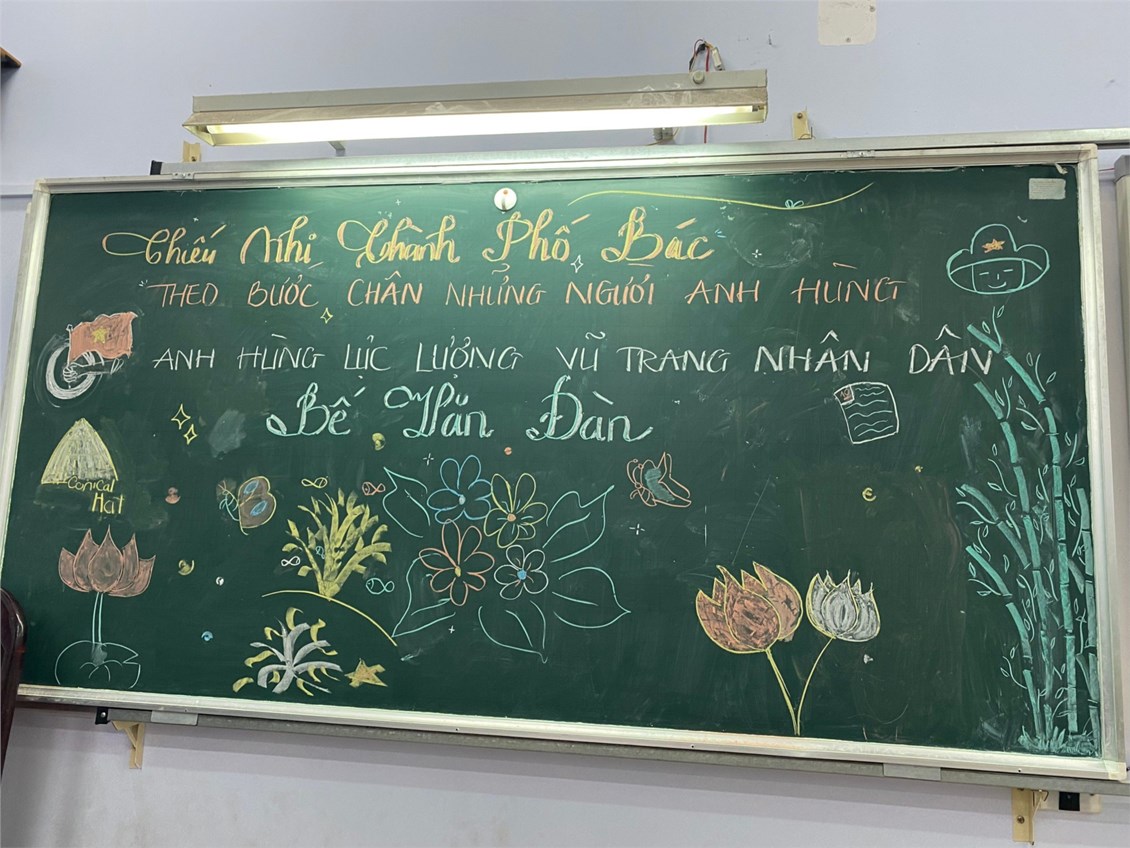 Thiếu Nhi Thành Phố Bác
THEO BƯỚC CHÂN NHỮNG NGƯỜI ANH HÙNG
ANH HÙNG LỰC LƯỢNG VŨ TRANG NHÂN DÂN
Bế Văn Đàn
Conical
Hat